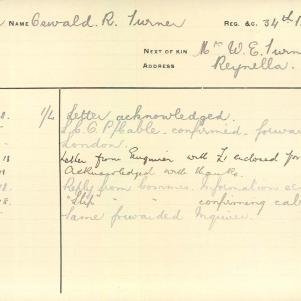 NAME Oswald R. Turner REG. &C. 34th
NEXT OF KIN Mr W. E. Turn
ADDRESS Reynella.
1/4 Letter acknowledged.
Cable confirmed forwa
London.
18 Letter from Enquirer with £1 enclosed for
18 Acknowledged with thanks.
18. Reply from Information
18. "Slip" " " confirming cab
Same forwarded Inquirer.